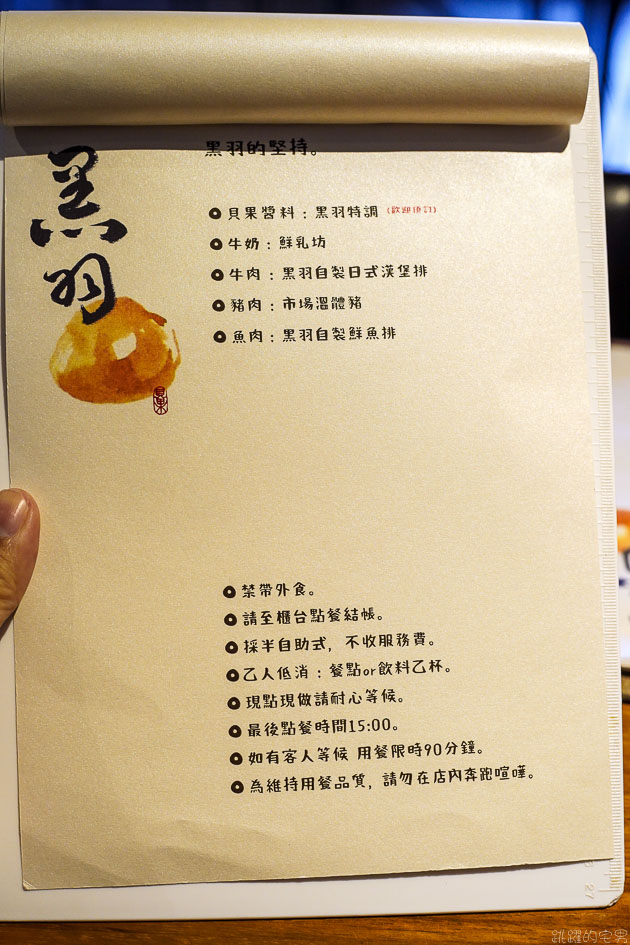 黑羽的堅持。
黑羽
貝果
貝果醬料：黑羽特調 (歡迎預訂)
牛奶：鮮乳坊
牛肉：黑羽自製日式漢堡排
豬肉：市場溫體豬
魚肉：黑羽自製鮮魚排
禁帶外食。
請至櫃台點餐結帳。
採半自助式，不收服務費。
乙人低消：餐點or飲料乙杯。
現點現做請耐心等候。
最後點餐時間15:00。
如有客人等候 用餐限時90分鐘。
為維持用餐品質，請勿在店內奔跑喧嘩。
27
跳躍的宅男